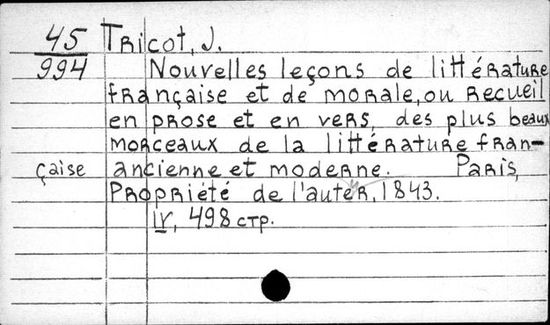 45 Tricot, J.
994 Nouvelles leçons de littérature
française et de morale, ou recueil
en prose et en vers, des plus beaux
morceaux de la littérature fran-
çaise ancienne et moderne. Paris,
Propriété de l'auter, 1843.
IV, 498 стр.